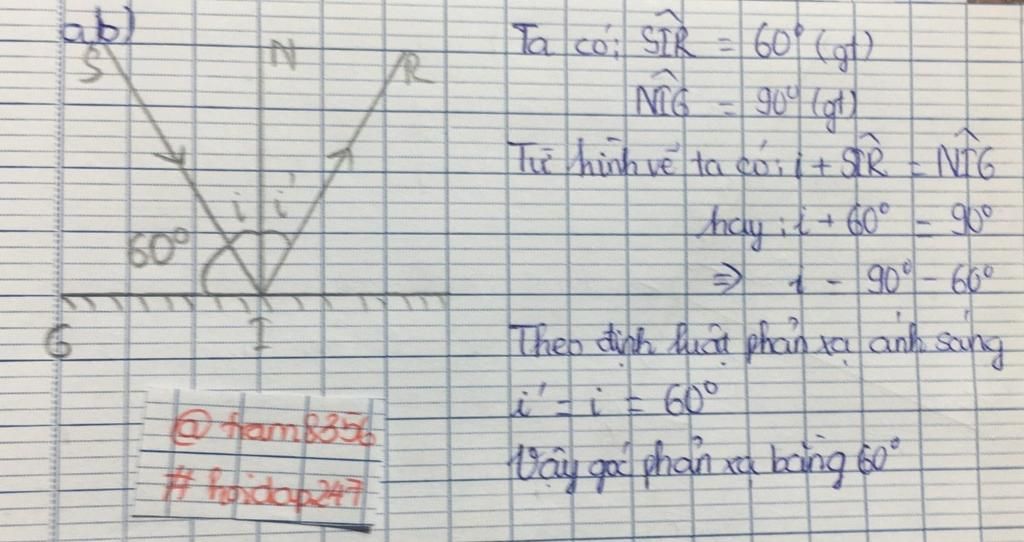 a,b)
S N R
i i'
60°
G I
@ tram8356
# hoidap247
Ta có: SÎR = 60° (gt)
NÎG = 90° (gt)
Từ hình vẽ ta có: i + SÎR = NÎG
hay: i + 60° = 90°
⇒ i = 90° - 60°
Theo định luật phản xạ ánh sáng
i' = i = 60°
Vậy góc phản xạ bằng 60°